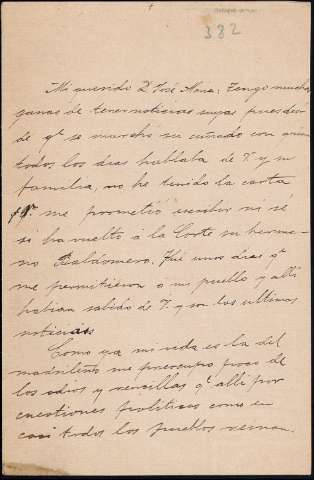 382
Mi querido D. José Maria: Tengo muchas
ganas de tener noticias suyas pues desde
de qe se marchó su cuñado con quien
todos los dias hablaba de V. y su
familia, no he tenido la carta
qe me prometió escribir ni sé
si ha vuelto á la Corte su herma-
no Baldomero. Fuí unos dias qe
me permitieron a mi pueblo y alli
habian sabido de V. y son las ultimas
noticias.
Como ya mi vida es la del
madrileño me preocupo poco de
los odios y rencillas qe alli por
cuestiones politicas como en
casi todos los pueblos reinan.